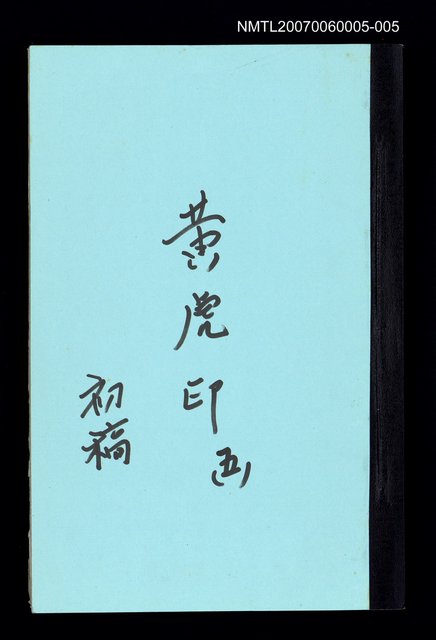 NMTL20070060005-005
黃虎印
(五)
初稿